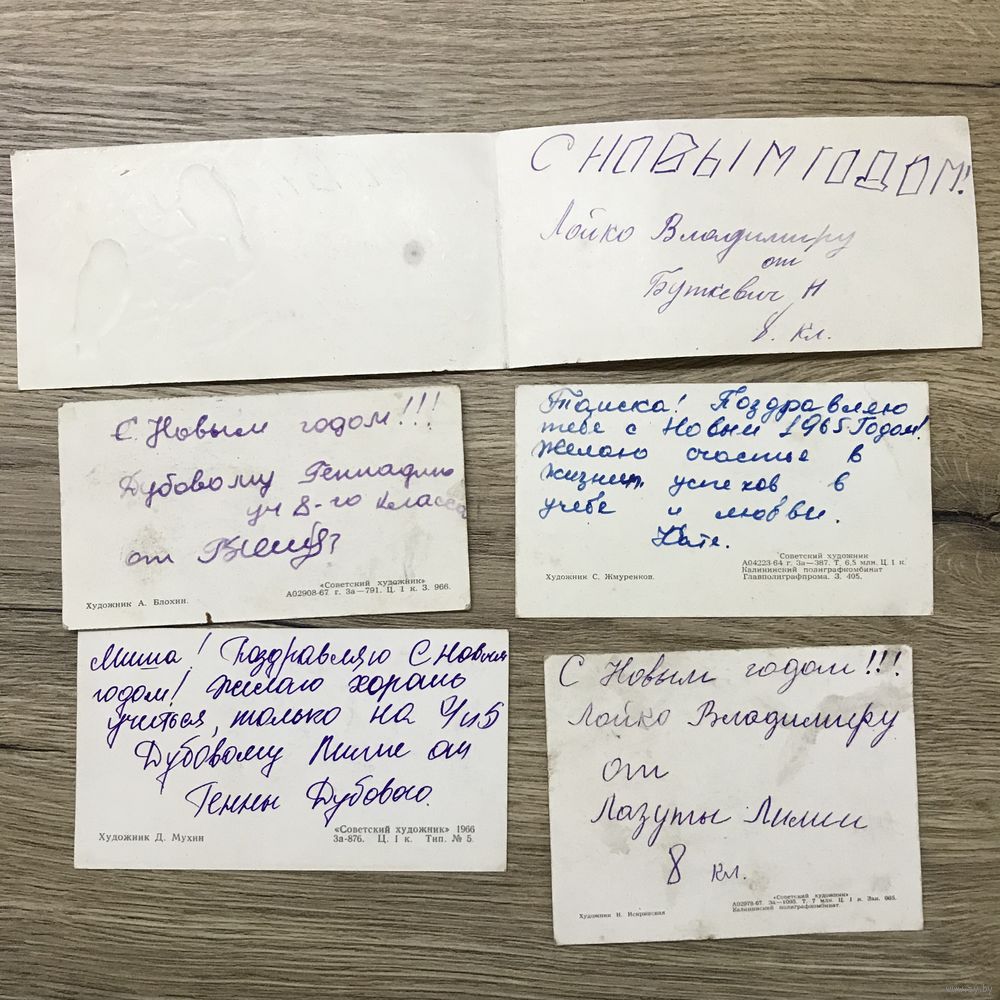 С НОВЫМ ГОДОМ!
Лойко Владимиру
от
Буткевич Н
8. кл.
С Новым годом!!!
Дубовому Геннадию
уч 8-го класса
от
Художник А. Блохин.
«Советский художник»
А02908-67 г. За—791. Ц. 1 к. З. 966.
Таиска! Поздравляю
тебе с Новым 1965 Годом!
Желаю счастье в
жизни, успехов в
учебе и любви.
Катe.
Художник С. Жмуренков.
Советский художник
А04223-64 г. За—387. Т. 6,5 млн. Ц. 1 к.
Калининский полиграфкомбинат
Главполиграфпрома. З. 405.
Миша! Поздравляю С Новым
годом! Желаю хорошь
учиться, только на 4 и 5
Дубовому Мише от
Генны Дубового.
Художник Д. Мухин
«Советский художник» 1966
За-876. Ц. 1 к. Тип. № 5.
С Новым годом!!!
Лойко Владимиру
от
Лазуты Лилии
8 кл.
Художник Н. Искринская
«Советский художник»
А02978-67. За—1095. Т. 7 млн. Ц. 1 к. Зак. 965.
Калининский полиграфкомбинат.